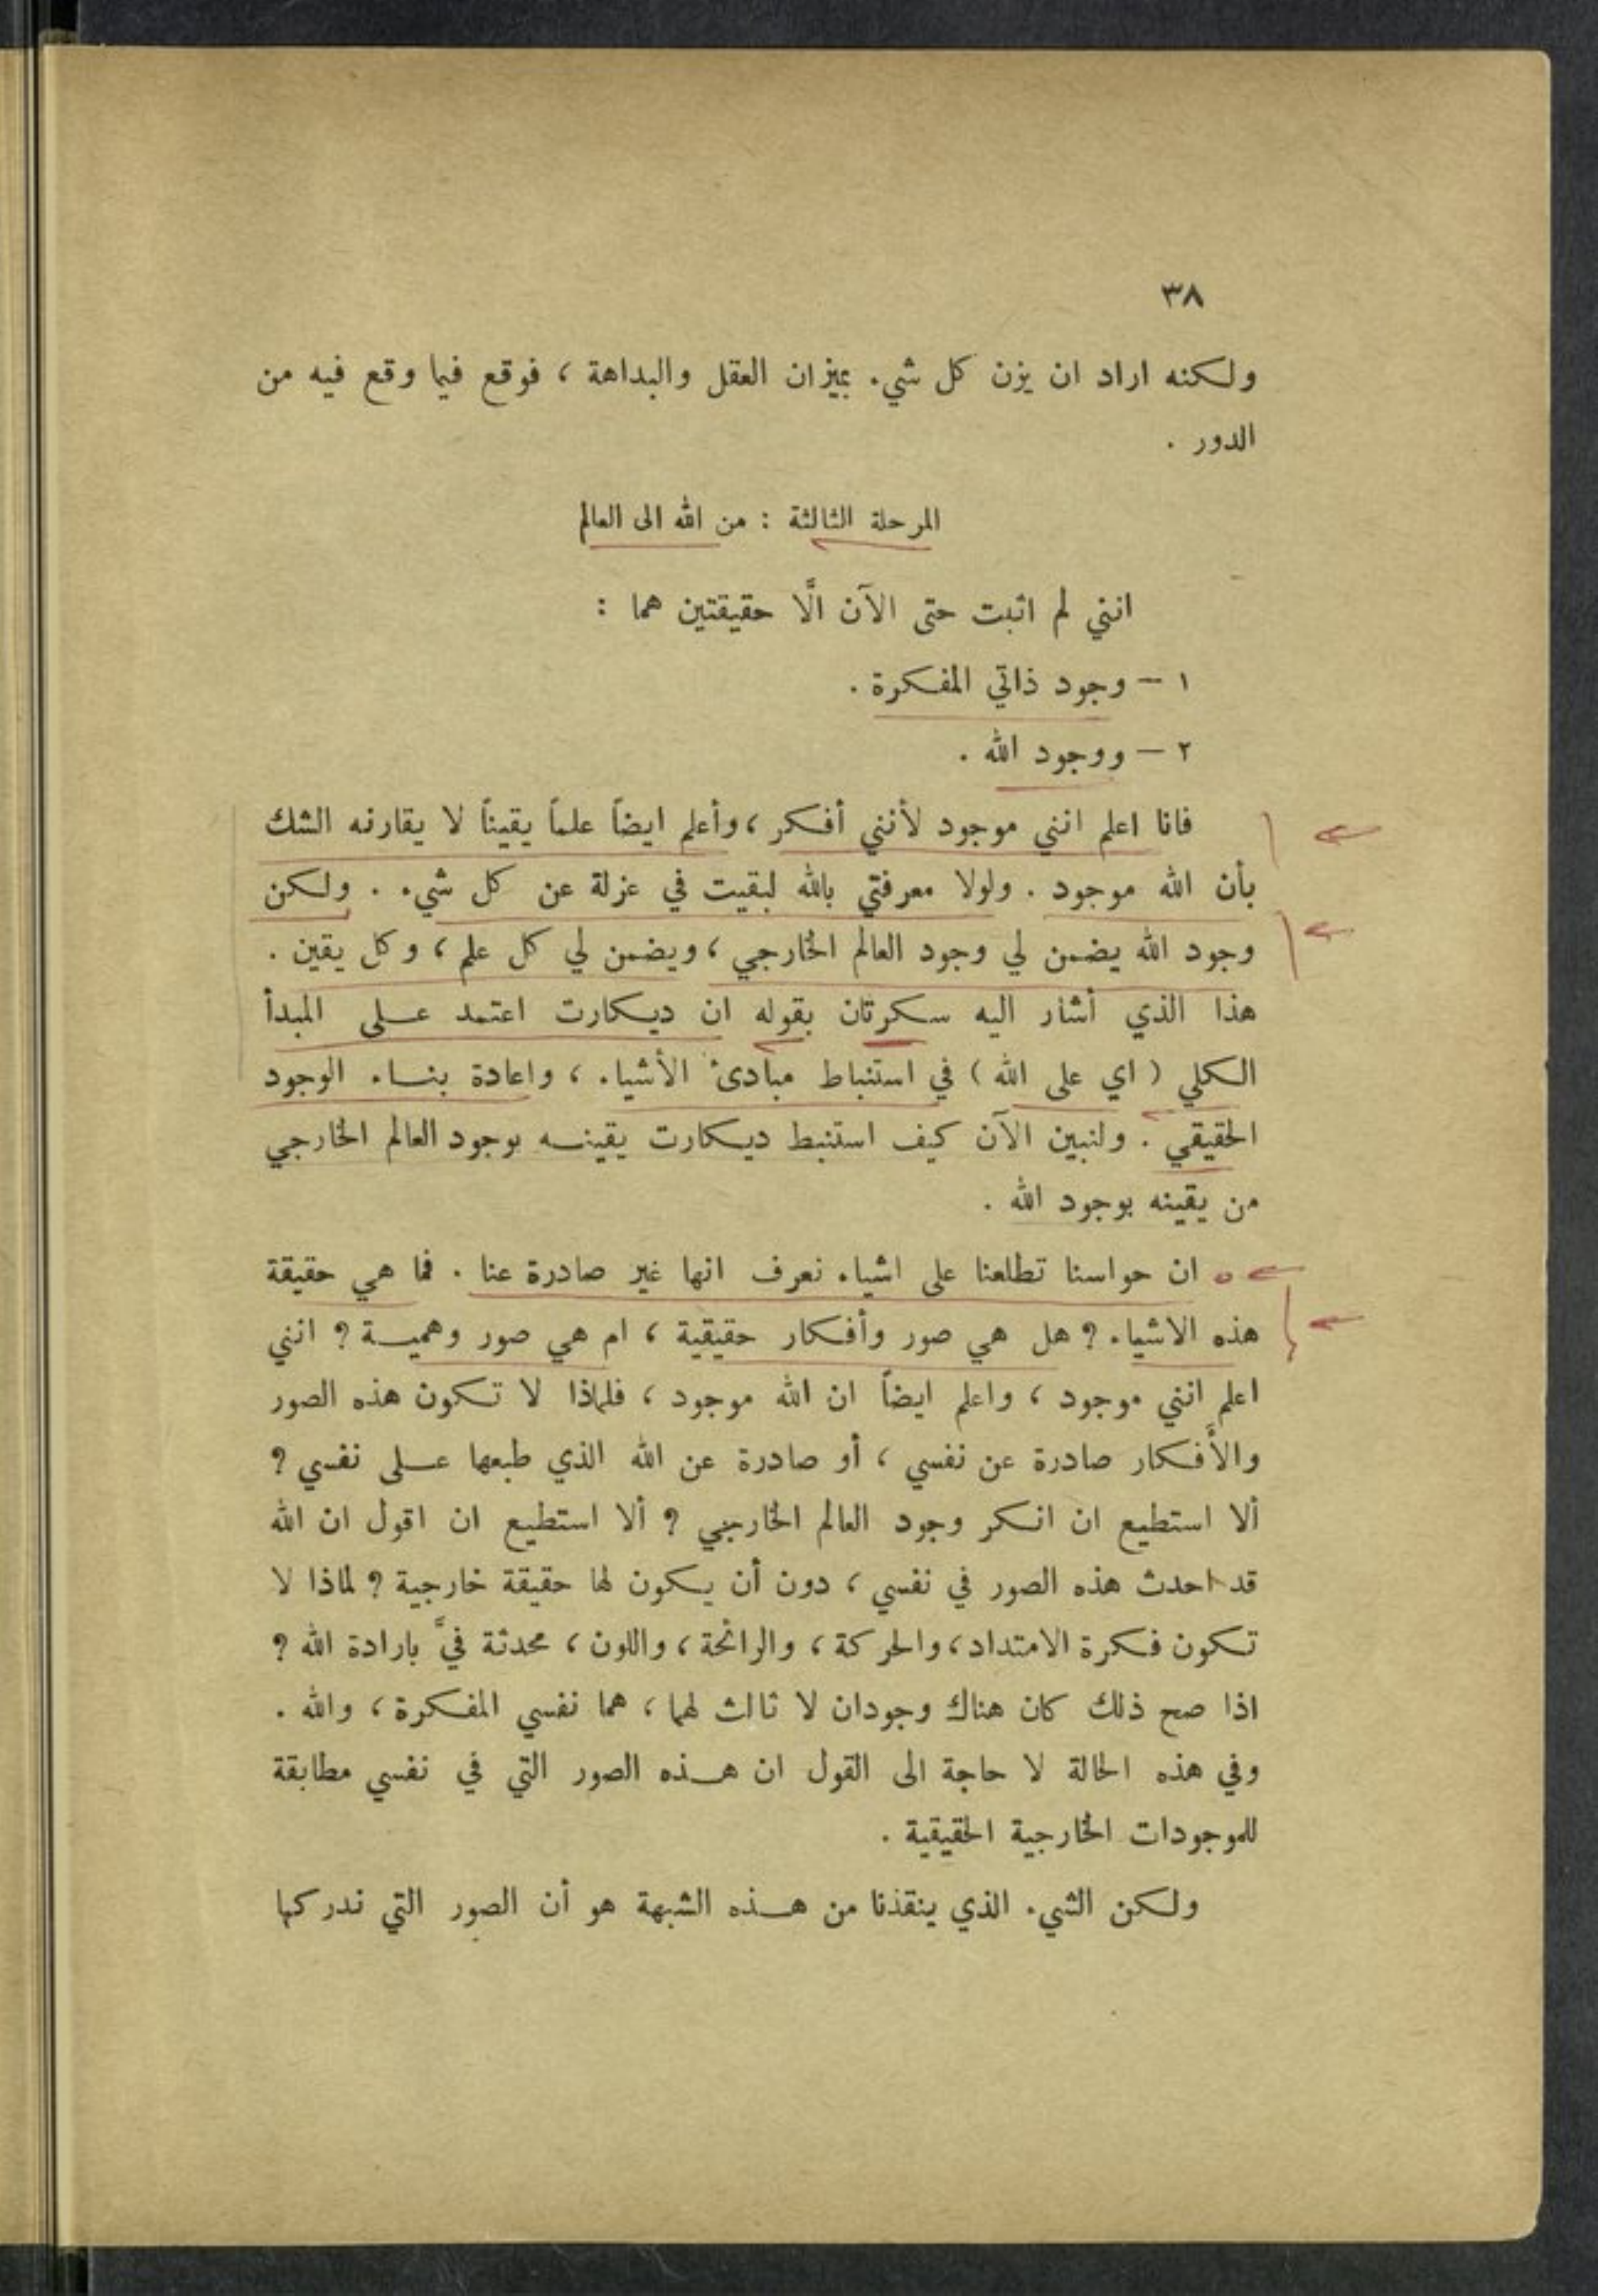 ٣٨
ولكنه اراد ان يزن كل شيء بميزان العقل والبداهة ، فوقع فيما وقع فيه من
الدور .
المرحلة الثالثة : من الله الى العالم
انني لم اثبت حتى الآن الَّا حقيقتين هما :
١ – وجود ذاتي المفكرة .
٢ – ووجود الله .
فانا اعلم انني موجود لأنني أفكر ، وأعلم ايضاً علماً يقيناً لا يقارنه الشك
بأن الله موجود . ولولا معرفتي بالله لبقيت في عزلة عن كل شيء . ولكن
وجود الله يضمن لي وجود العالم الخارجي ، ويضمن لي كل علم ، وكل يقين .
هذا الذي أشار اليه سكرتان بقوله ان ديكارت اعتمد على المبدأ
الكلي ( اي على الله ) في استنباط مبادئ الأشياء ، واعادة بناء الوجود
الحقيقي . ولنبين الآن كيف استنبط ديكارت يقينه بوجود العالم الخارجي
من يقينه بوجود الله .
ان حواسنا تطلعنا على اشياء نعرف انها غير صادرة عنا . فما هي حقيقة
هذه الاشياء ؟ هل هي صور وأفكار حقيقية ، ام هي صور وهمية ؟ انني
اعلم انني موجود ، واعلم ايضاً ان الله موجود ، فلماذا لا تكون هذه الصور
والأَفكار صادرة عن نفسي ، أو صادرة عن الله الذي طبعها على نفسي ؟
ألا استطيع ان انكر وجود العالم الخارجي ؟ ألا استطيع ان اقول ان الله
قد احدث هذه الصور في نفسي ، دون أن يكون لها حقيقة خارجية ؟ لماذا لا
تكون فكرة الامتداد ، والحركة ، والرائحة ، واللون ، محدثة فيَّ بارادة الله ؟
اذا صح ذلك كان هناك وجودان لا ثالث لهما ، هما نفسي المفكرة ، والله .
وفي هذه الحالة لا حاجة الى القول ان هذه الصور التي في نفسي مطابقة
للموجودات الخارجية الحقيقية .
ولكن الشيء الذي ينقذنا من هذه الشبهة هو أن الصور التي ندركها